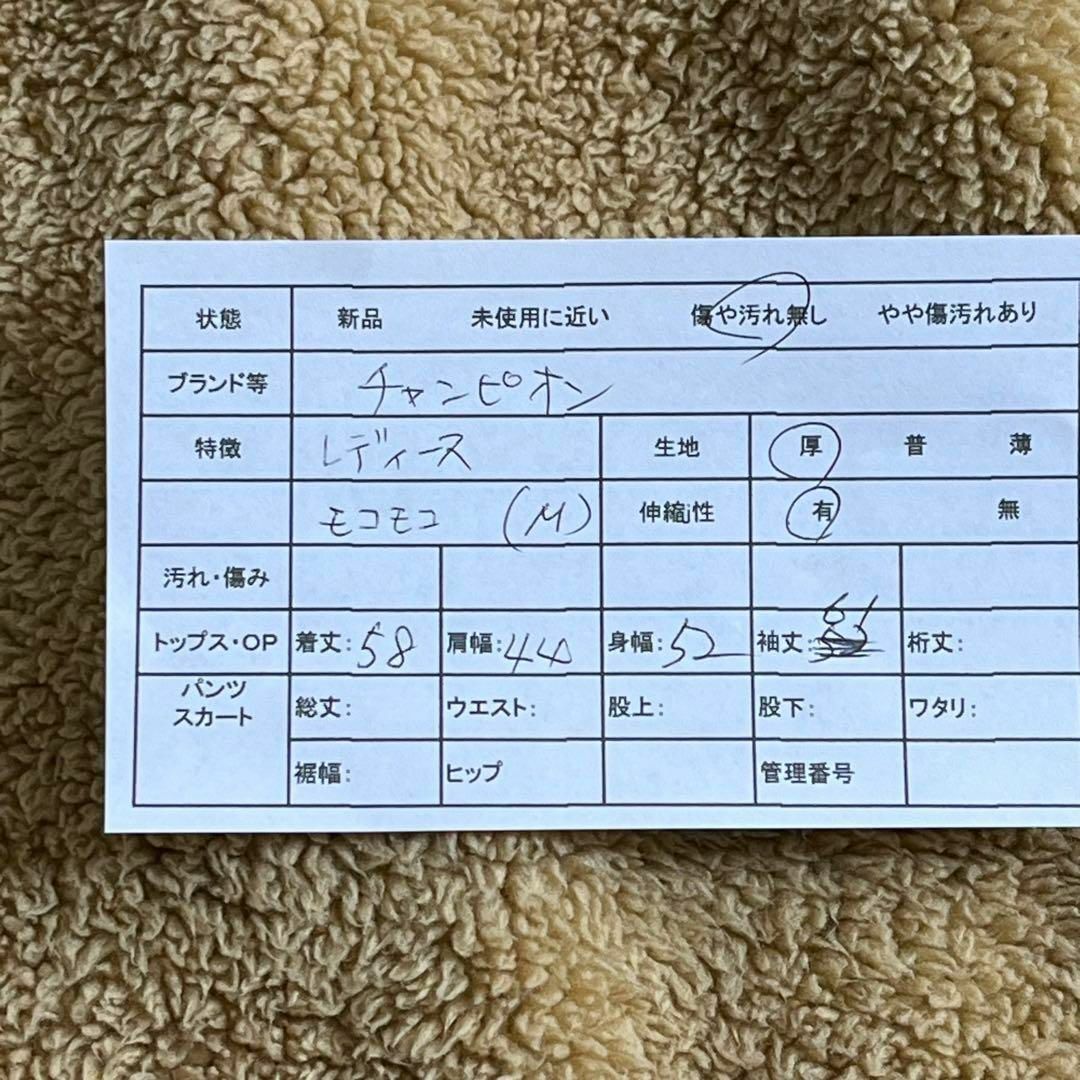 状態 新品 未使用に近い 傷や汚れ無し やや傷汚れあり
ブランド等 チャンピオン
特徴 レディース 生地 厚 普 薄
モコモコ (M) 伸縮j性 有 無
汚れ・傷み
トップス・OP 着丈: 58 肩幅: 44 身幅: 52 袖丈: 桁丈:
パンツ
スカート 総丈: ウエスト: 股上: 股下: ワタリ:
裾幅: ヒップ 管理番号